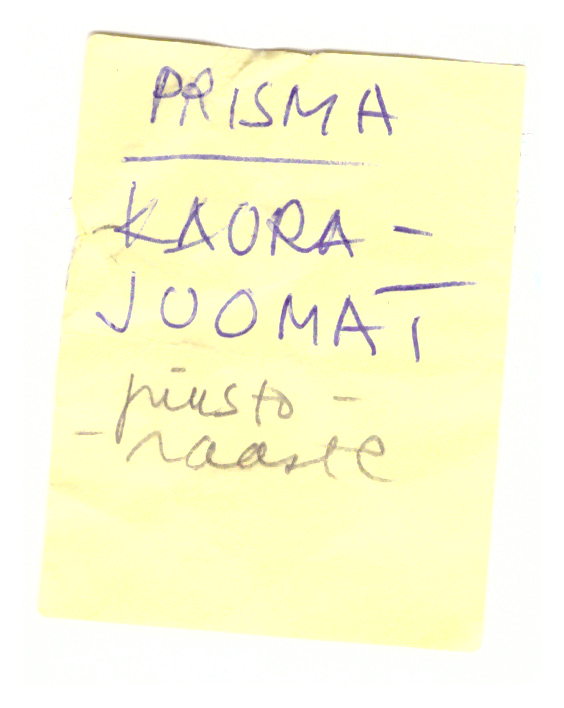 PRISMA
KAURA-
JUOMAT
juusto-
-raaste